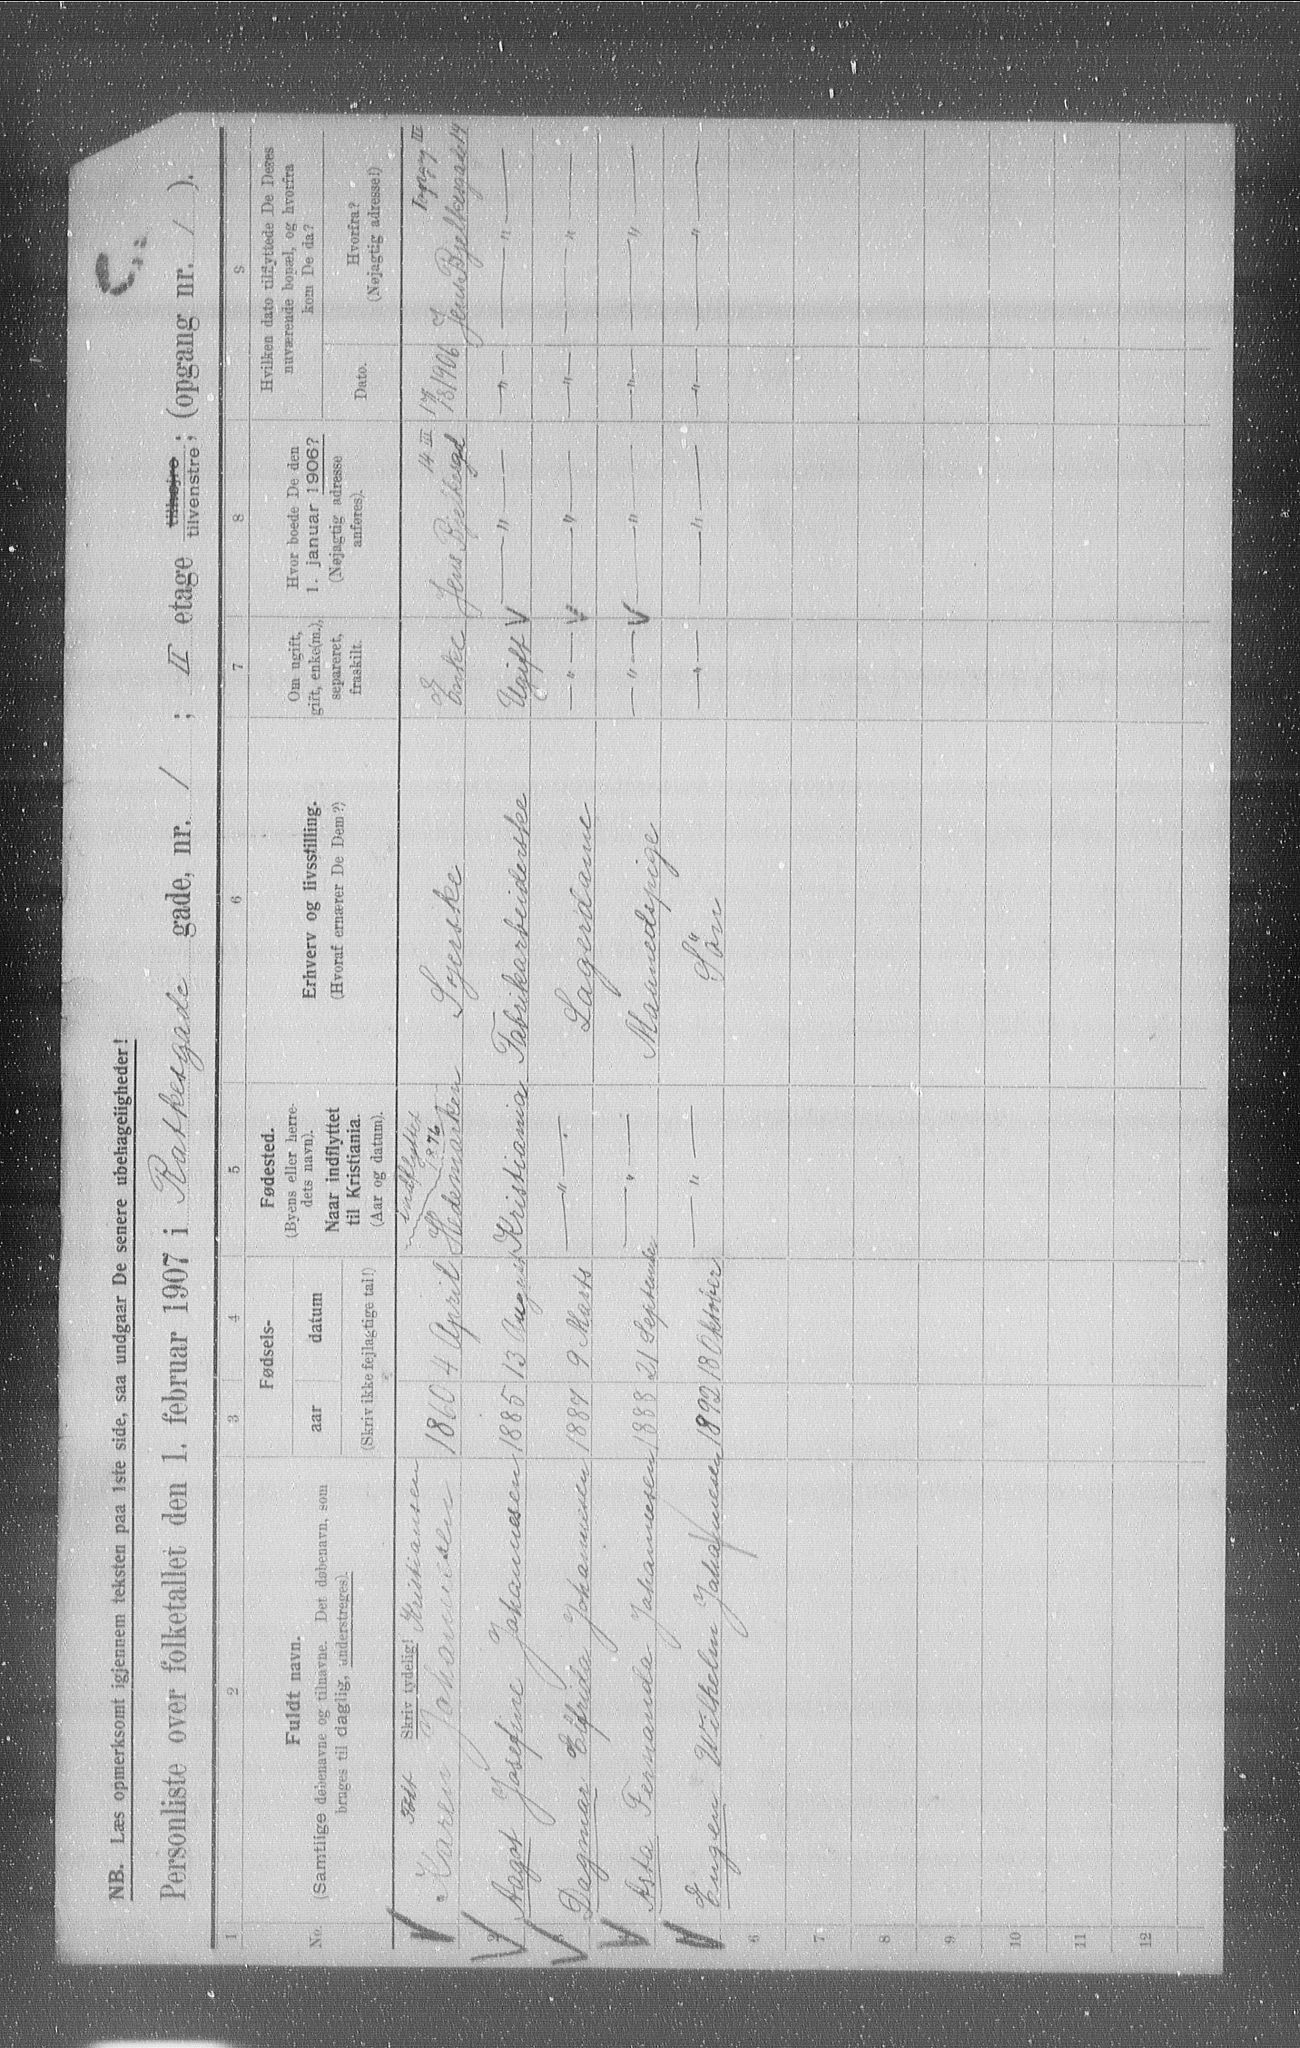 NB. Læs opmerksomt igjennem teksten paa 1ste side, saa undgaar De senere ubehageligheder!
Personliste over folketallet den 1. februar 1907 i Ratkesgade gade, nr. 1 ; II etage tilhøjre tilvenstre; (opgang nr. 1 ).
1 2 3 4 5 6 7 8 9
No.
Fuldt navn.
(Samtlige døbenavne og tilnavne. Det døbenavn, som
bruges til daglig, understreges).
Skriv tydelig!
Fødsels-
aar datum
(Skriv ikke fejlagtige tal!)
Fødested.
(Byens eller herre-
dets navn).
Naar indflyttet
til Kristiania.
(Aar og datum).
Erhverv og livsstilling.
(Hvoraf ernærer De Dem?)
Om ugift,
gift, enke(m.),
separeret,
fraskilt.
Hvor boede De den
1. januar 1906?
(Nøjagtig adresse
anføres).
Hvilken dato tilflyttede De Deres
nuværende bopæl, og hvorfra
kom De da?
Dato.
Hvorfra?
(Nøjagtig adresse!)
Født Kristiansen indflyttet 1876 14 III 17 Opgang III
Karen Johannesen 1860 4 April Hedemarken Syerske Enke Jens Bjelkesgd 1906 Jens Bjelkesgade 14
2 Aagot Josefine Johannesen 1885 13 August Kristiania Fabrikarbeiderske Ugift — " — — " — — " —
Dagmar Elfrida Johannesen 1887 9 Marts — " — Lagerdame — " — — " — — " — — " —
Asta Fernanda Johannesen 1888 21 September — " — Maanedspige — " — — " — — " — — " —
Eugen Wilhelm Johannesen 1892 18 Oktober — " — Sön — " — — " — — " — — " —
6
7
8
9
10
11
12